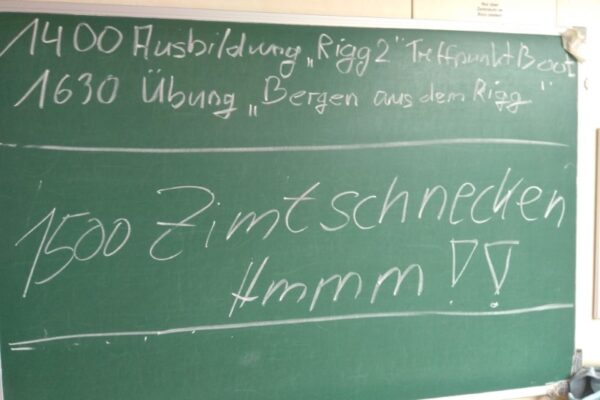 1400 Ausbildung „Rigg 2" Treffpunkt Boot
1630 Übung „Bergen aus dem Rigg"
1500 Zimtschnecken
Hmmm !!